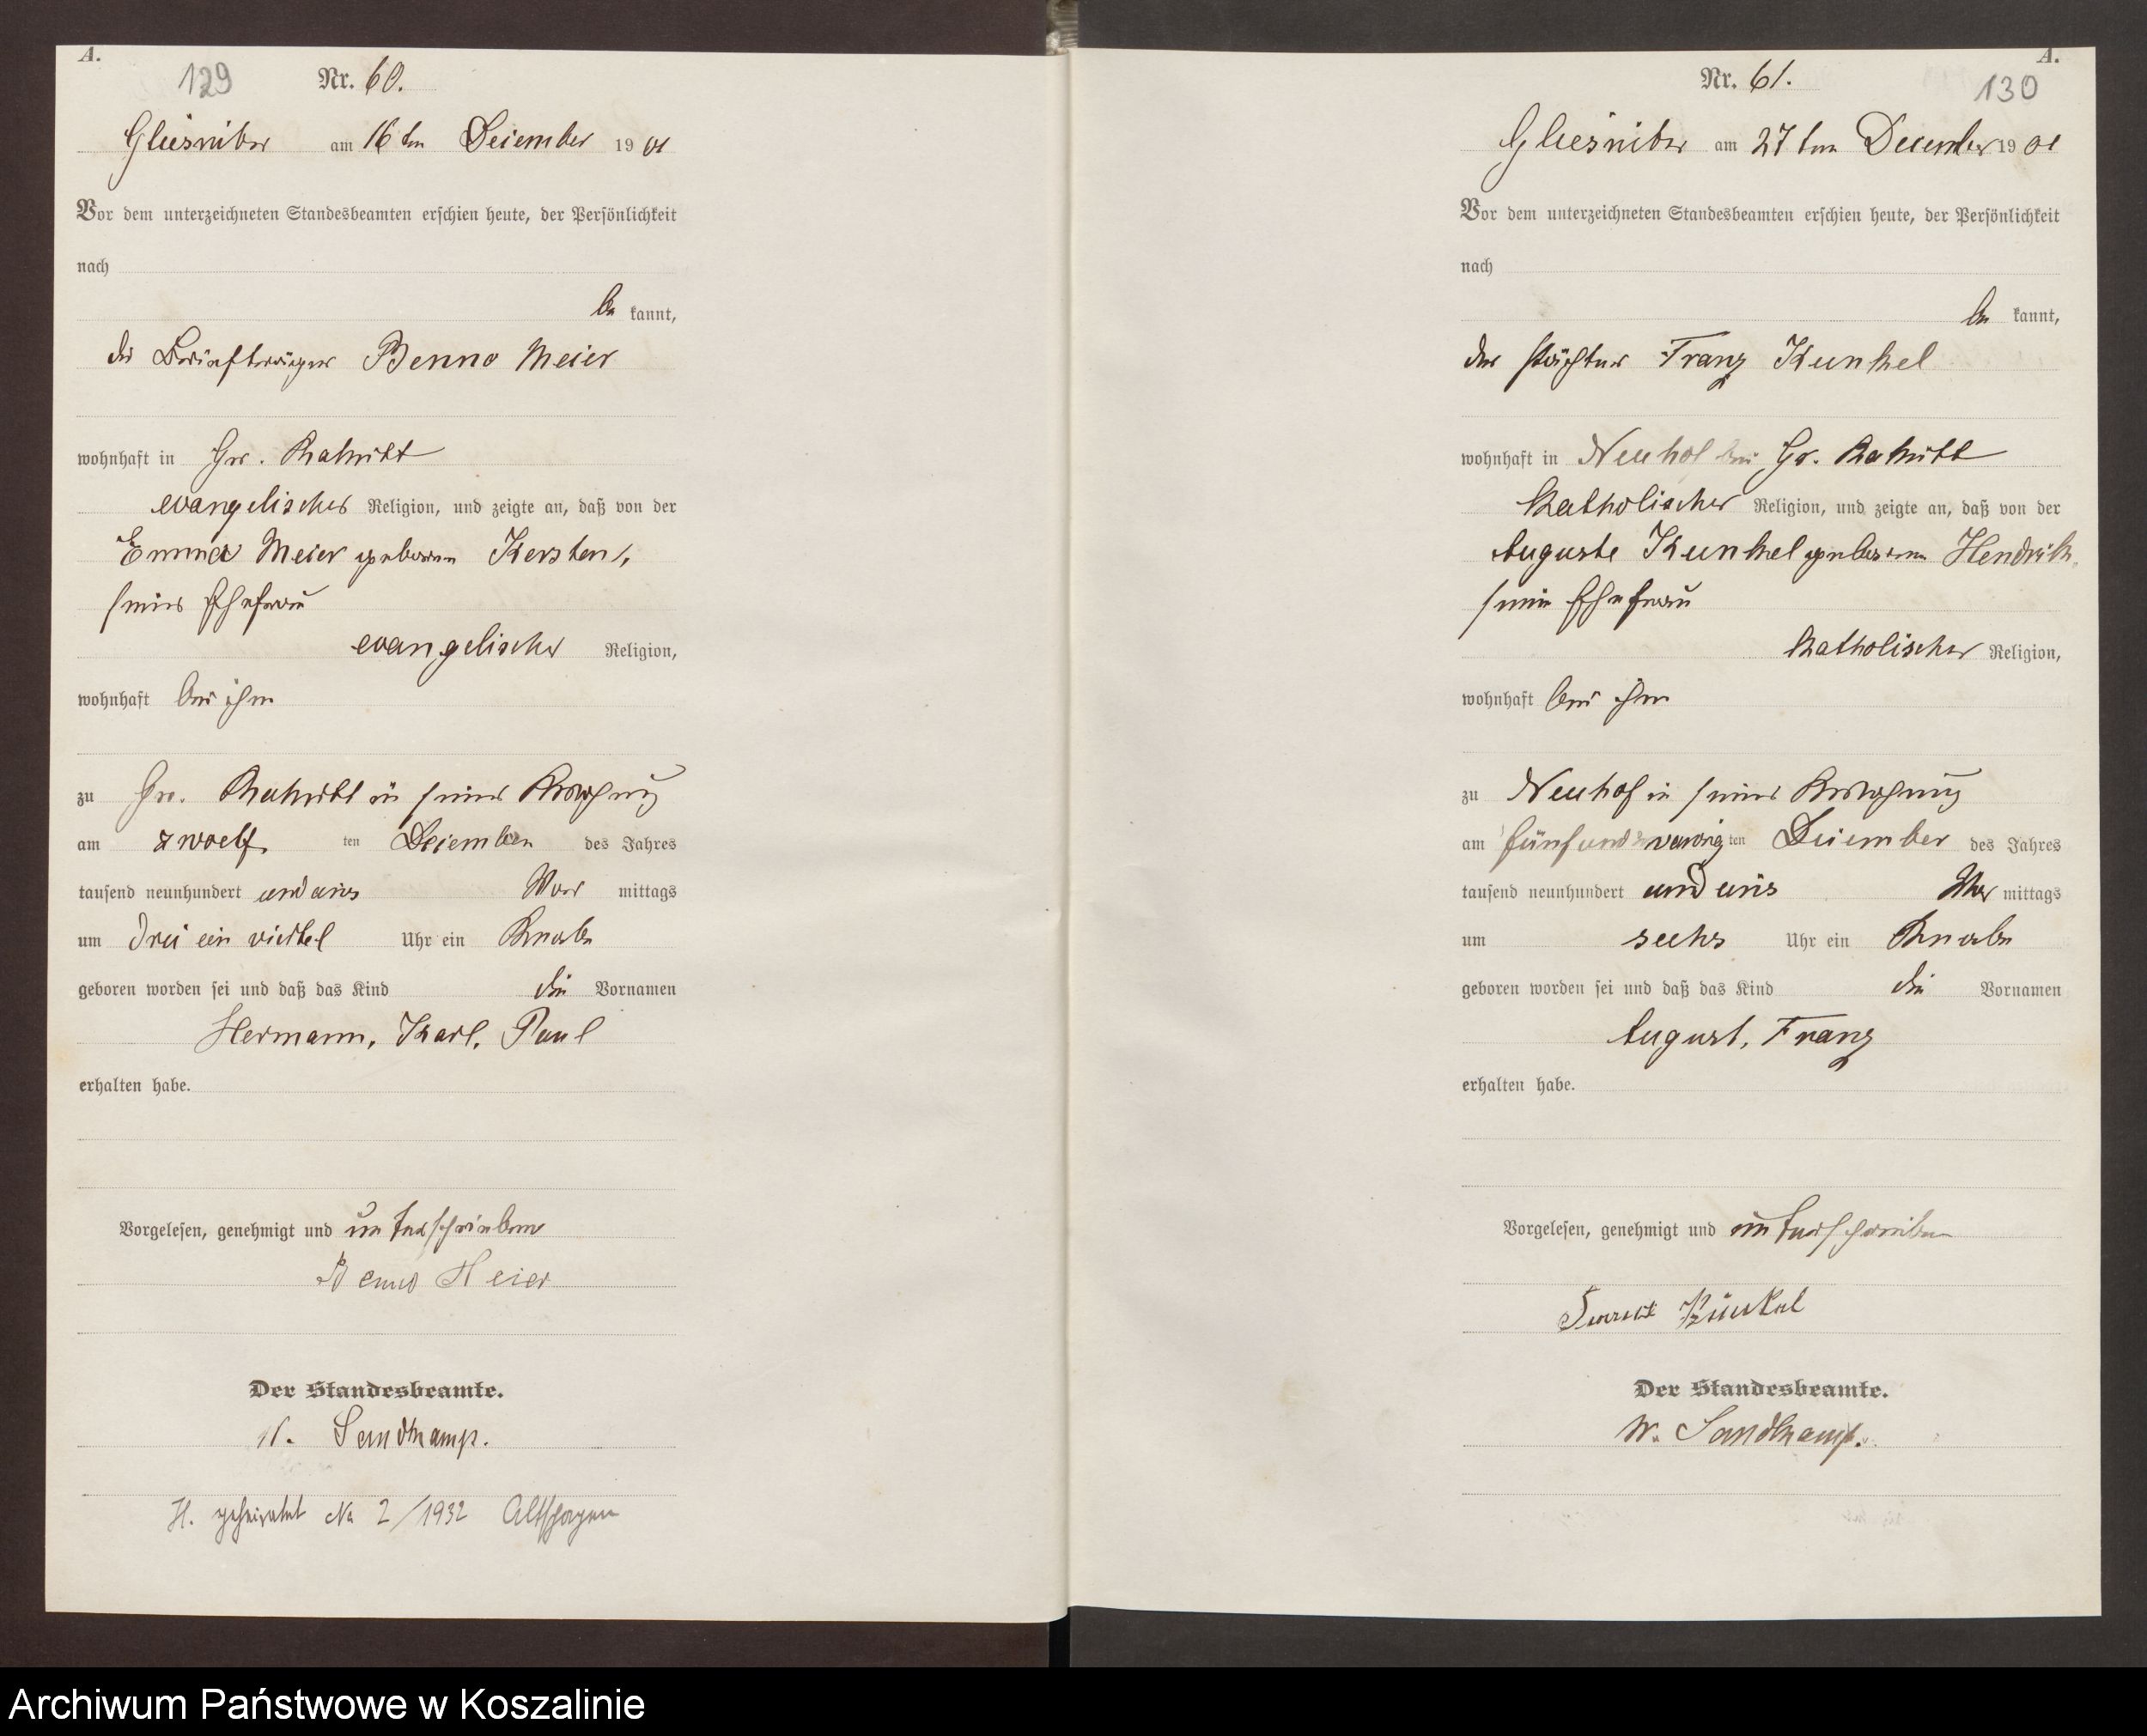 A.
129 Nr. 60.
am 16ten Dezember 1901
Vor dem unterzeichneten Standesbeamten erschien heute, der Persönlichkeit
nach
be kannt,
der Briefträger Benno Meier
wohnhaft in Gr. Katnikl
evangelischer Religion, und zeigte an, daß von der
Emma Meier geborenen Kersten,
seiner Ehefrau
evangelischer Religion,
wohnhaft bei ihm
zu Gr. in seiner Wohnung
am zwoelf ten Dezember des Jahres
tausend neunhundert und eins Vor mittags
um drei ein viertel Uhr ein Knabe
geboren worden sei und daß das Kind die Vornamen
Hermann, Karl, Paul
erhalten habe.
Vorgelesen, genehmigt und unterschrieben
Benno Meier
Der Standesbeamte.
W. Sandkamp.
H. geheiratet No 2/1932 Althagen
A.
Nr. 61. 130
am 27ten December 1901
Vor dem unterzeichneten Standesbeamten erschien heute, der Persönlichkeit
nach
be kannt,
der Pächter Franz Kunkel
wohnhaft in Neuhof bei Gr.
katholischer Religion, und zeigte an, daß von der
Auguste Kunkel geborenen Hendrik,
seine Ehefrau
katholischer Religion,
wohnhaft bei ihm
zu Neuhof in seiner Wohnung
am fünfundzwanzig ten Dezember des Jahres
tausend neunhundert und eins Vor mittags
um sechs Uhr ein Knabe
geboren worden sei und daß das Kind die Vornamen
August, Franz
erhalten habe.
Vorgelesen, genehmigt und unterschrieben
Franz Kunkel
Der Standesbeamte.
W. Sandkamp.
Archiwum Państwowe w Koszalinie